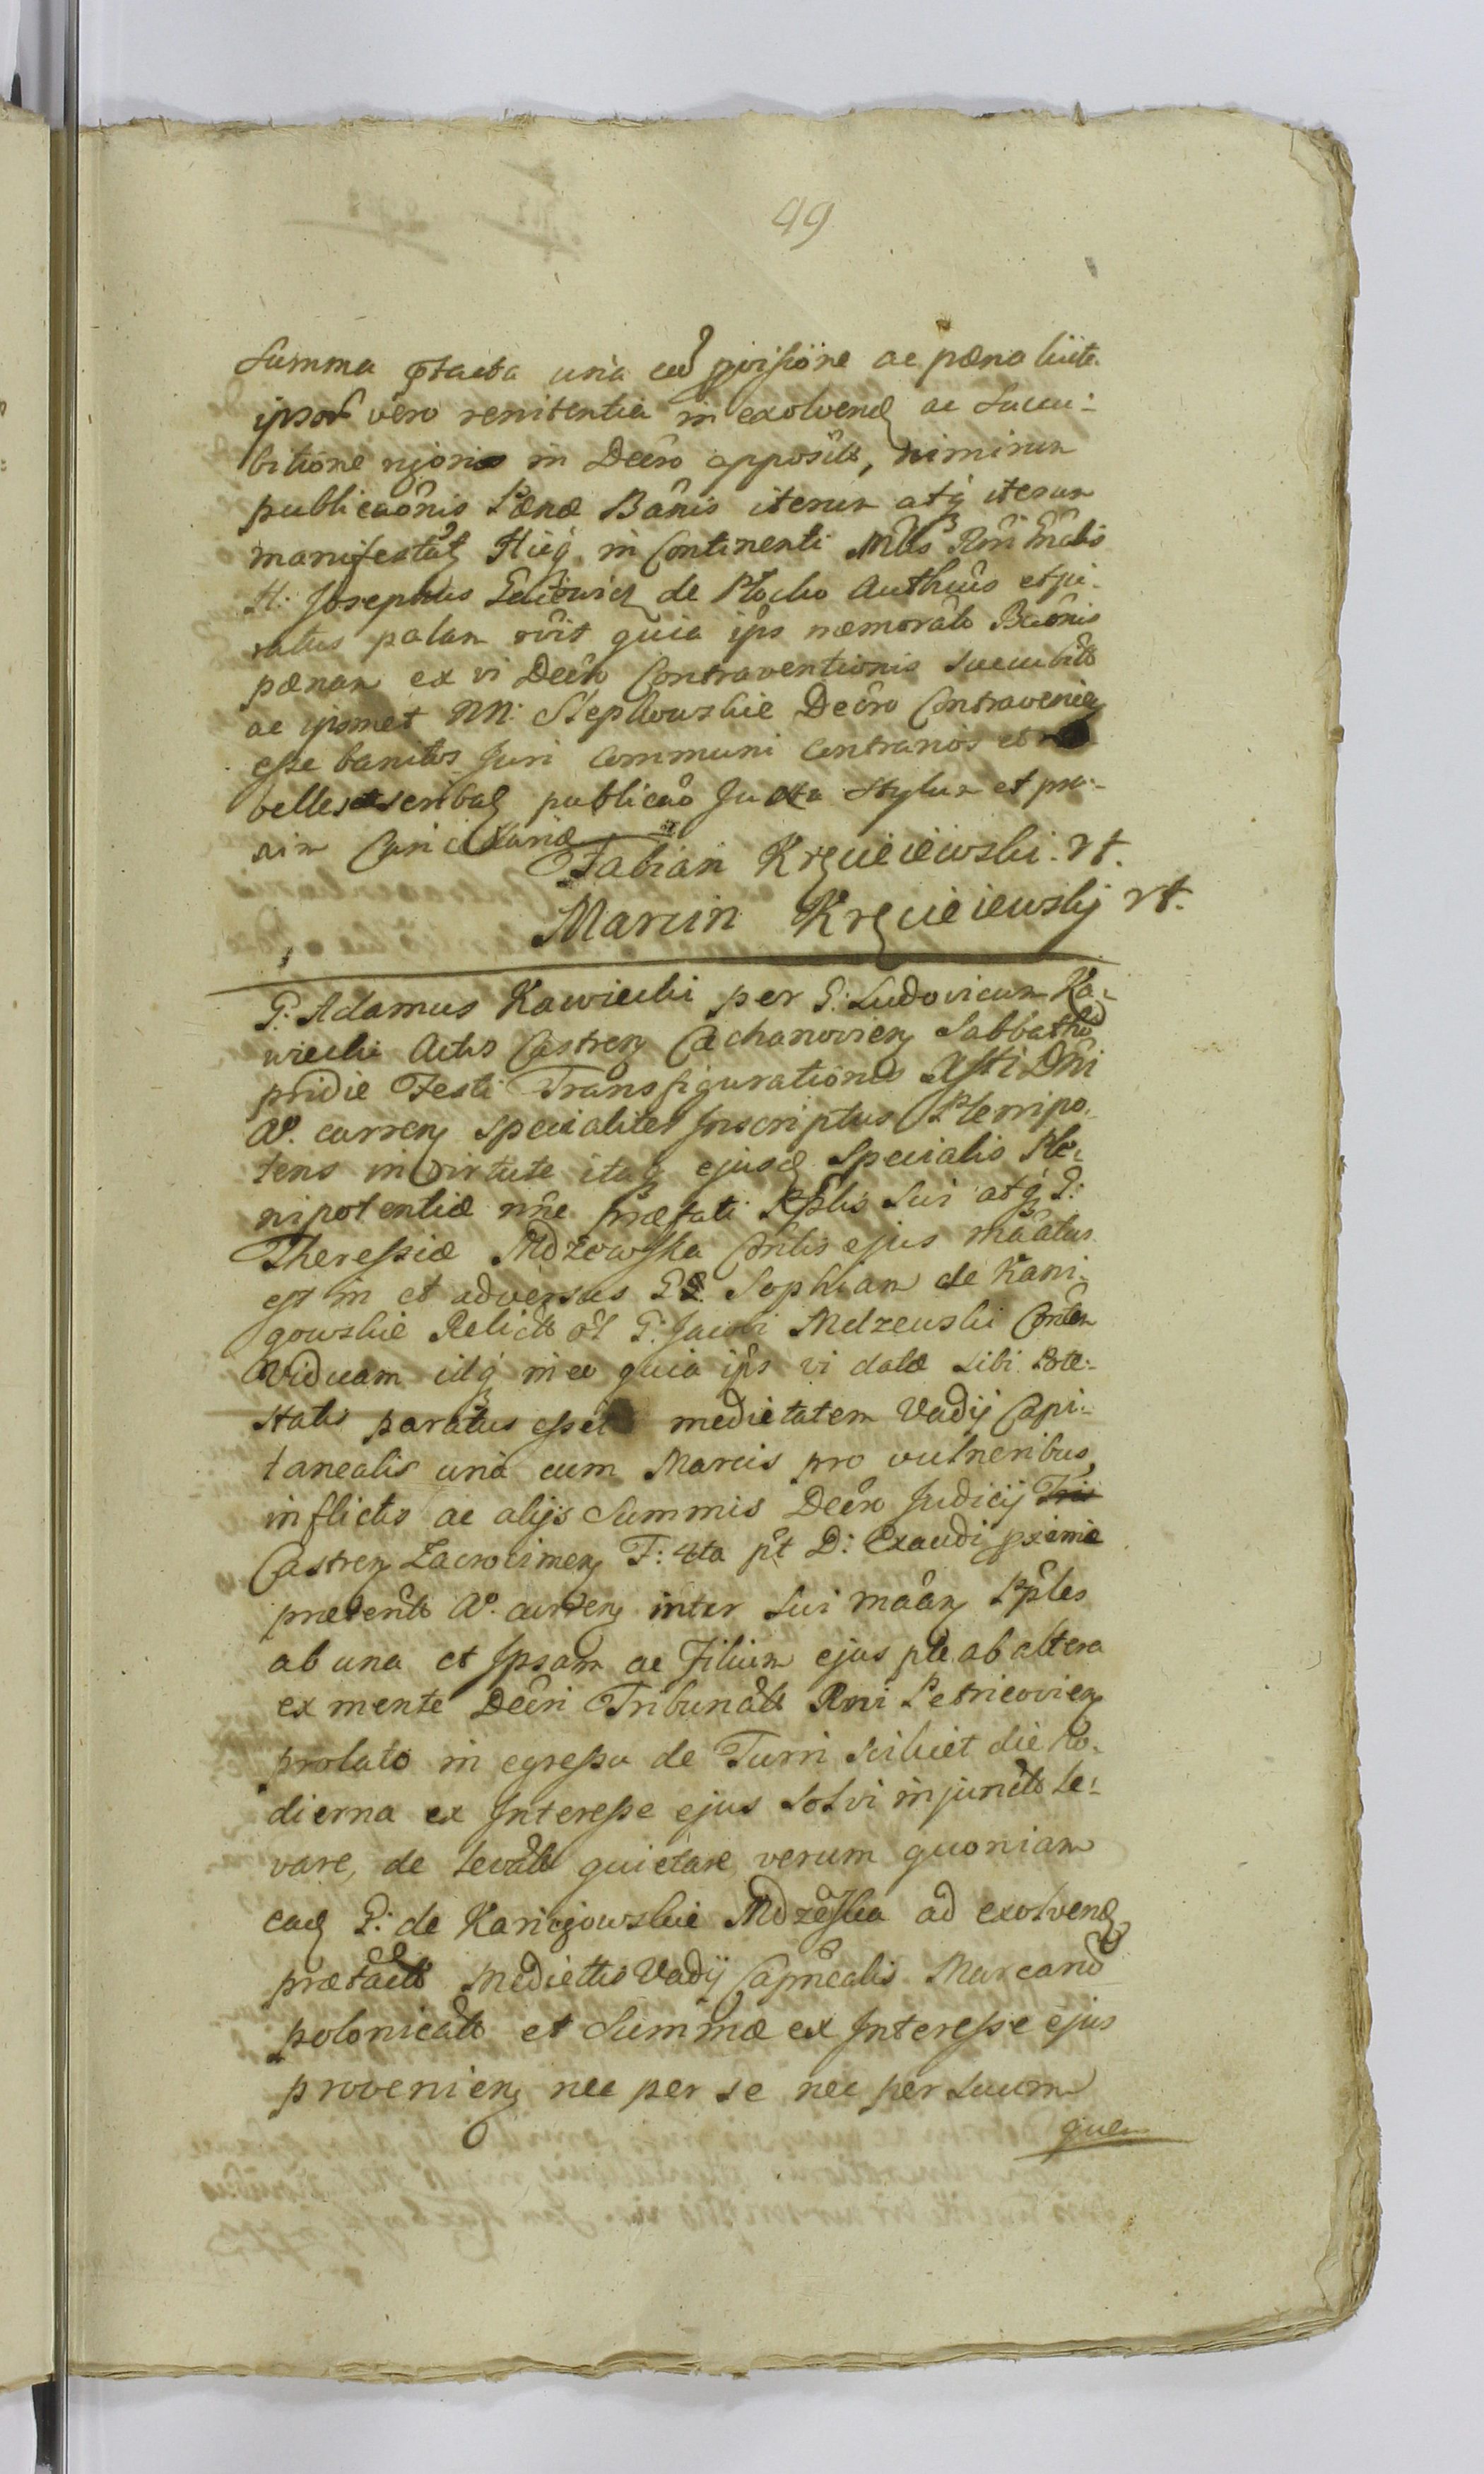 49
Summa ptacta una cũ pvisione ac pæna luite
ipsor vero renitentia in exolvend ac succu-
bitione rigoris in Decro apposit, nimirum
publicaônis Pænæ Banis iterum atq iterum
manifestat Hieq in Continenti Mtls Rni Gnalis
H: Josephus de Plocko Authius et ju-
ratus palam rûit quia ips memorat Banis
pænam ex vi Decr Contraventionis succubit
ac ipsmet NN: Stepkowskie Decro Contravenien
esse banitos Juri Communi contrarios et
velles scribad publicao Juxta Stylum et pra-
xim Cancellariæ
Fabian Kręciciewski rt.
Marcin Kręciciewsky rt.
G: Adamus Kawiecki per G: Ludovicum Ka-
wiecki Actis Castren Ciechanovien Sabbatho
pridie Festi Transfigurationis Xsti Dni
A°. curren specialiter Inscriptus Plenipo-
tens in virtute itaq ejusd Specialis Ple-
nipotentiæ nne præfati Pplis sui atq G:
Theressiæ Mdzewska Conlis ejus maâtus
est in et adversus G Sophiam de Kani-
gowskie Relict ol G: Jacobi Mdzewski Conlem
Viduam idq in eo quia ips vi datæ sibi Pote-
statis paratus esset medietatem Vadij Capi-
tanealis una cum Marcis pro vulneribus
inflictis ac alijs Summis Decro Judicij Tris
Castren Zacrocimen F: 4ta pt D: Exaudi pxime
præterit A°. curren inter sui maân Pples
ab una et Ipsam ac Filium ejus pte ab altera
ex mente Decri Tribunalt Rni Petricovien
prolato in egressu de Turri scilicet die ho-
dierna ex Interesse ejus solvi injunctt le-
vare, de levatt quietare verum quoniam
ead G: de Kanigowskie Mdzewska ad exolvend
prætactt Mediettis Vadij Capnealis Marcarũ
polonicatt et Summæ ex Interesse ejus
provenien nec per se nec per suum
quem